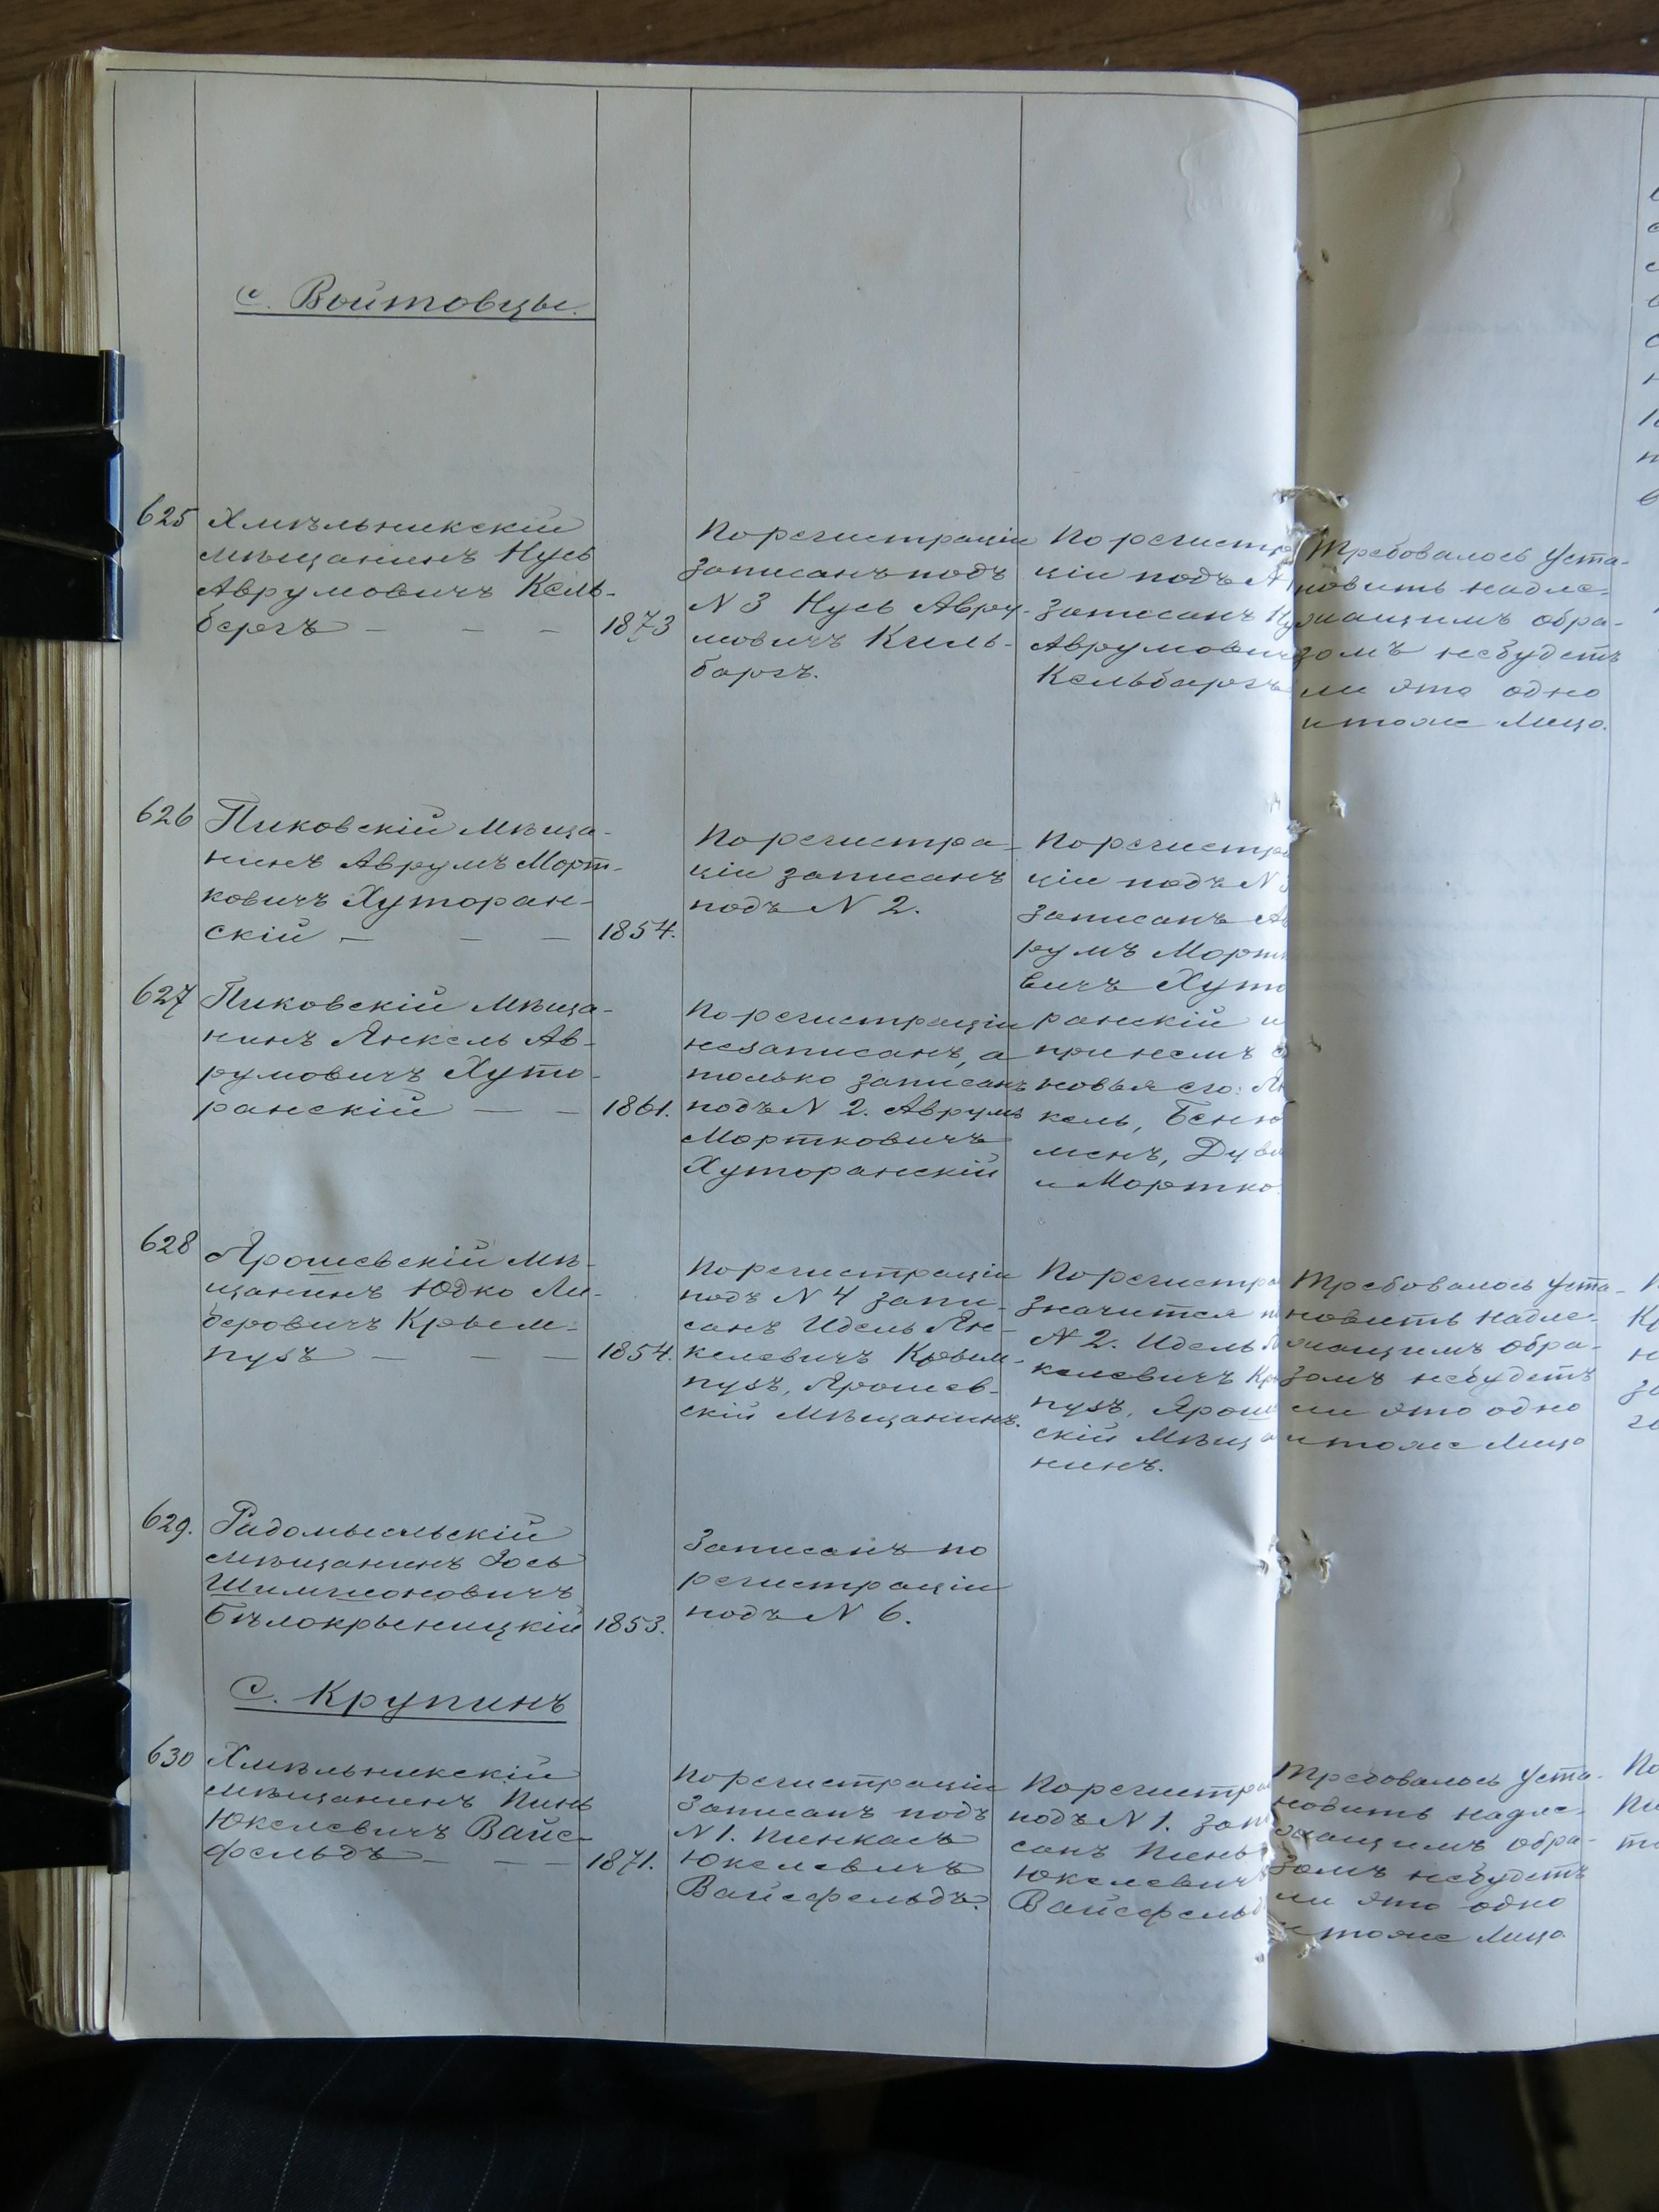 с. Войтовцы.
625
Хмѣльникскій
мѣщанинъ Нусь
Аврумовичъ Кель-
бергъ — — — 1873
По регистраціи
записанъ подъ
N 3 Нусь Авру-
мовичъ Киль-
баргъ.
По регистра
ціи подъ N
записанъ Ну
Аврумович
Кельбаргъ
Требовалось уста-
новить надле-
жащимъ обра-
зомъ небудетъ
ли это одно
и тоже лицо.
626
Пиковскій мѣща-
нинъ Аврумъ Морт-
ковичъ Хуторан-
скій — — — 1854.
По регистра-
ціи записанъ
подъ N 2.
По регистра
ціи подъ N 3
записанъ Ав
румъ Мортк
вичъ Хуто
ранскій и
при немъ с
новья его: Ян
кель, Беню
менъ, Дув
и Мортко.
627
Пиковскій мѣща-
нинъ Янкель Ав-
румовичъ Хуто-
ранскій — — 1861.
По регистраціи
незаписанъ, а
только записанъ
подъ N 2. Аврумъ
Мортковичъ
Хуторанскій
628
Ярошевскій мѣ-
щанинъ Юдко Ли-
беровичъ Крьем-
пузъ — — — 1854.
По регистраціи
подъ N 4 запи-
санъ Идель Ян-
келевичъ Крьем-
пузъ, Ярошев-
скій мѣщанинъ.
По регистра
значится п
N 2. Идель Я
келевичъ Кр
пузъ, Яроше
скій мѣща
нинъ.
Требовалось уста-
новить надле-
жащимъ обра-
зомъ небудетъ
ли это одно
и тоже лицо
629.
Радомысльскій
мѣщанинъ Іось
Шимшоновичъ
Бѣлокрыницкій 1853.
Записанъ по
регистраціи
подъ N 6.
С. Крупинъ
630
Хмѣльникскій
мѣщанинъ Пинь
Юкелевичъ Вайс-
фельдъ — — — 1871.
По регистраціи
записанъ подъ
N 1. Пинкасъ
Юкелевичъ
Вайсфельдъ.
По регистра
подъ N 1. зап
санъ Пинь
Юкелевич
Вайсфельд
Требовалось уста-
новить надле-
жащимъ обра-
зомъ небудетъ
ли это одно
и тоже лицо